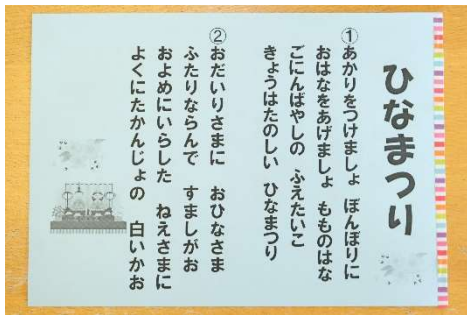 ひなまつり
①あかりをつけましょ ぼんぼりに
おはなをあげましょ もものはな
ごにんばやしの ふえたいこ
きょうはたのしい ひなまつり
②おだいりさまに おひなさま
ふたりならんで すましがお
およめにいらした ねえさまに
よくにたかんじょの 白いかお